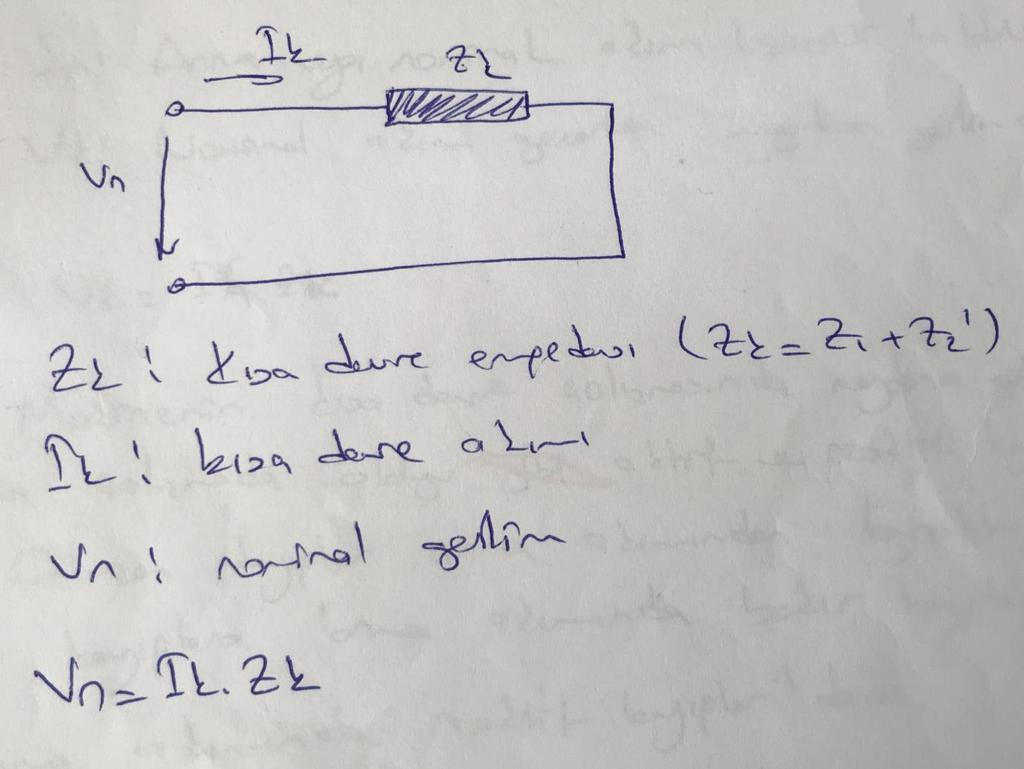 Ik
Zk
Vn
Zk : Kısa devre empedansı (Zk = Z1 + Z2')
Ik : kısa devre akımı
Vn : nominal gerilim
Vn = Ik . Zk